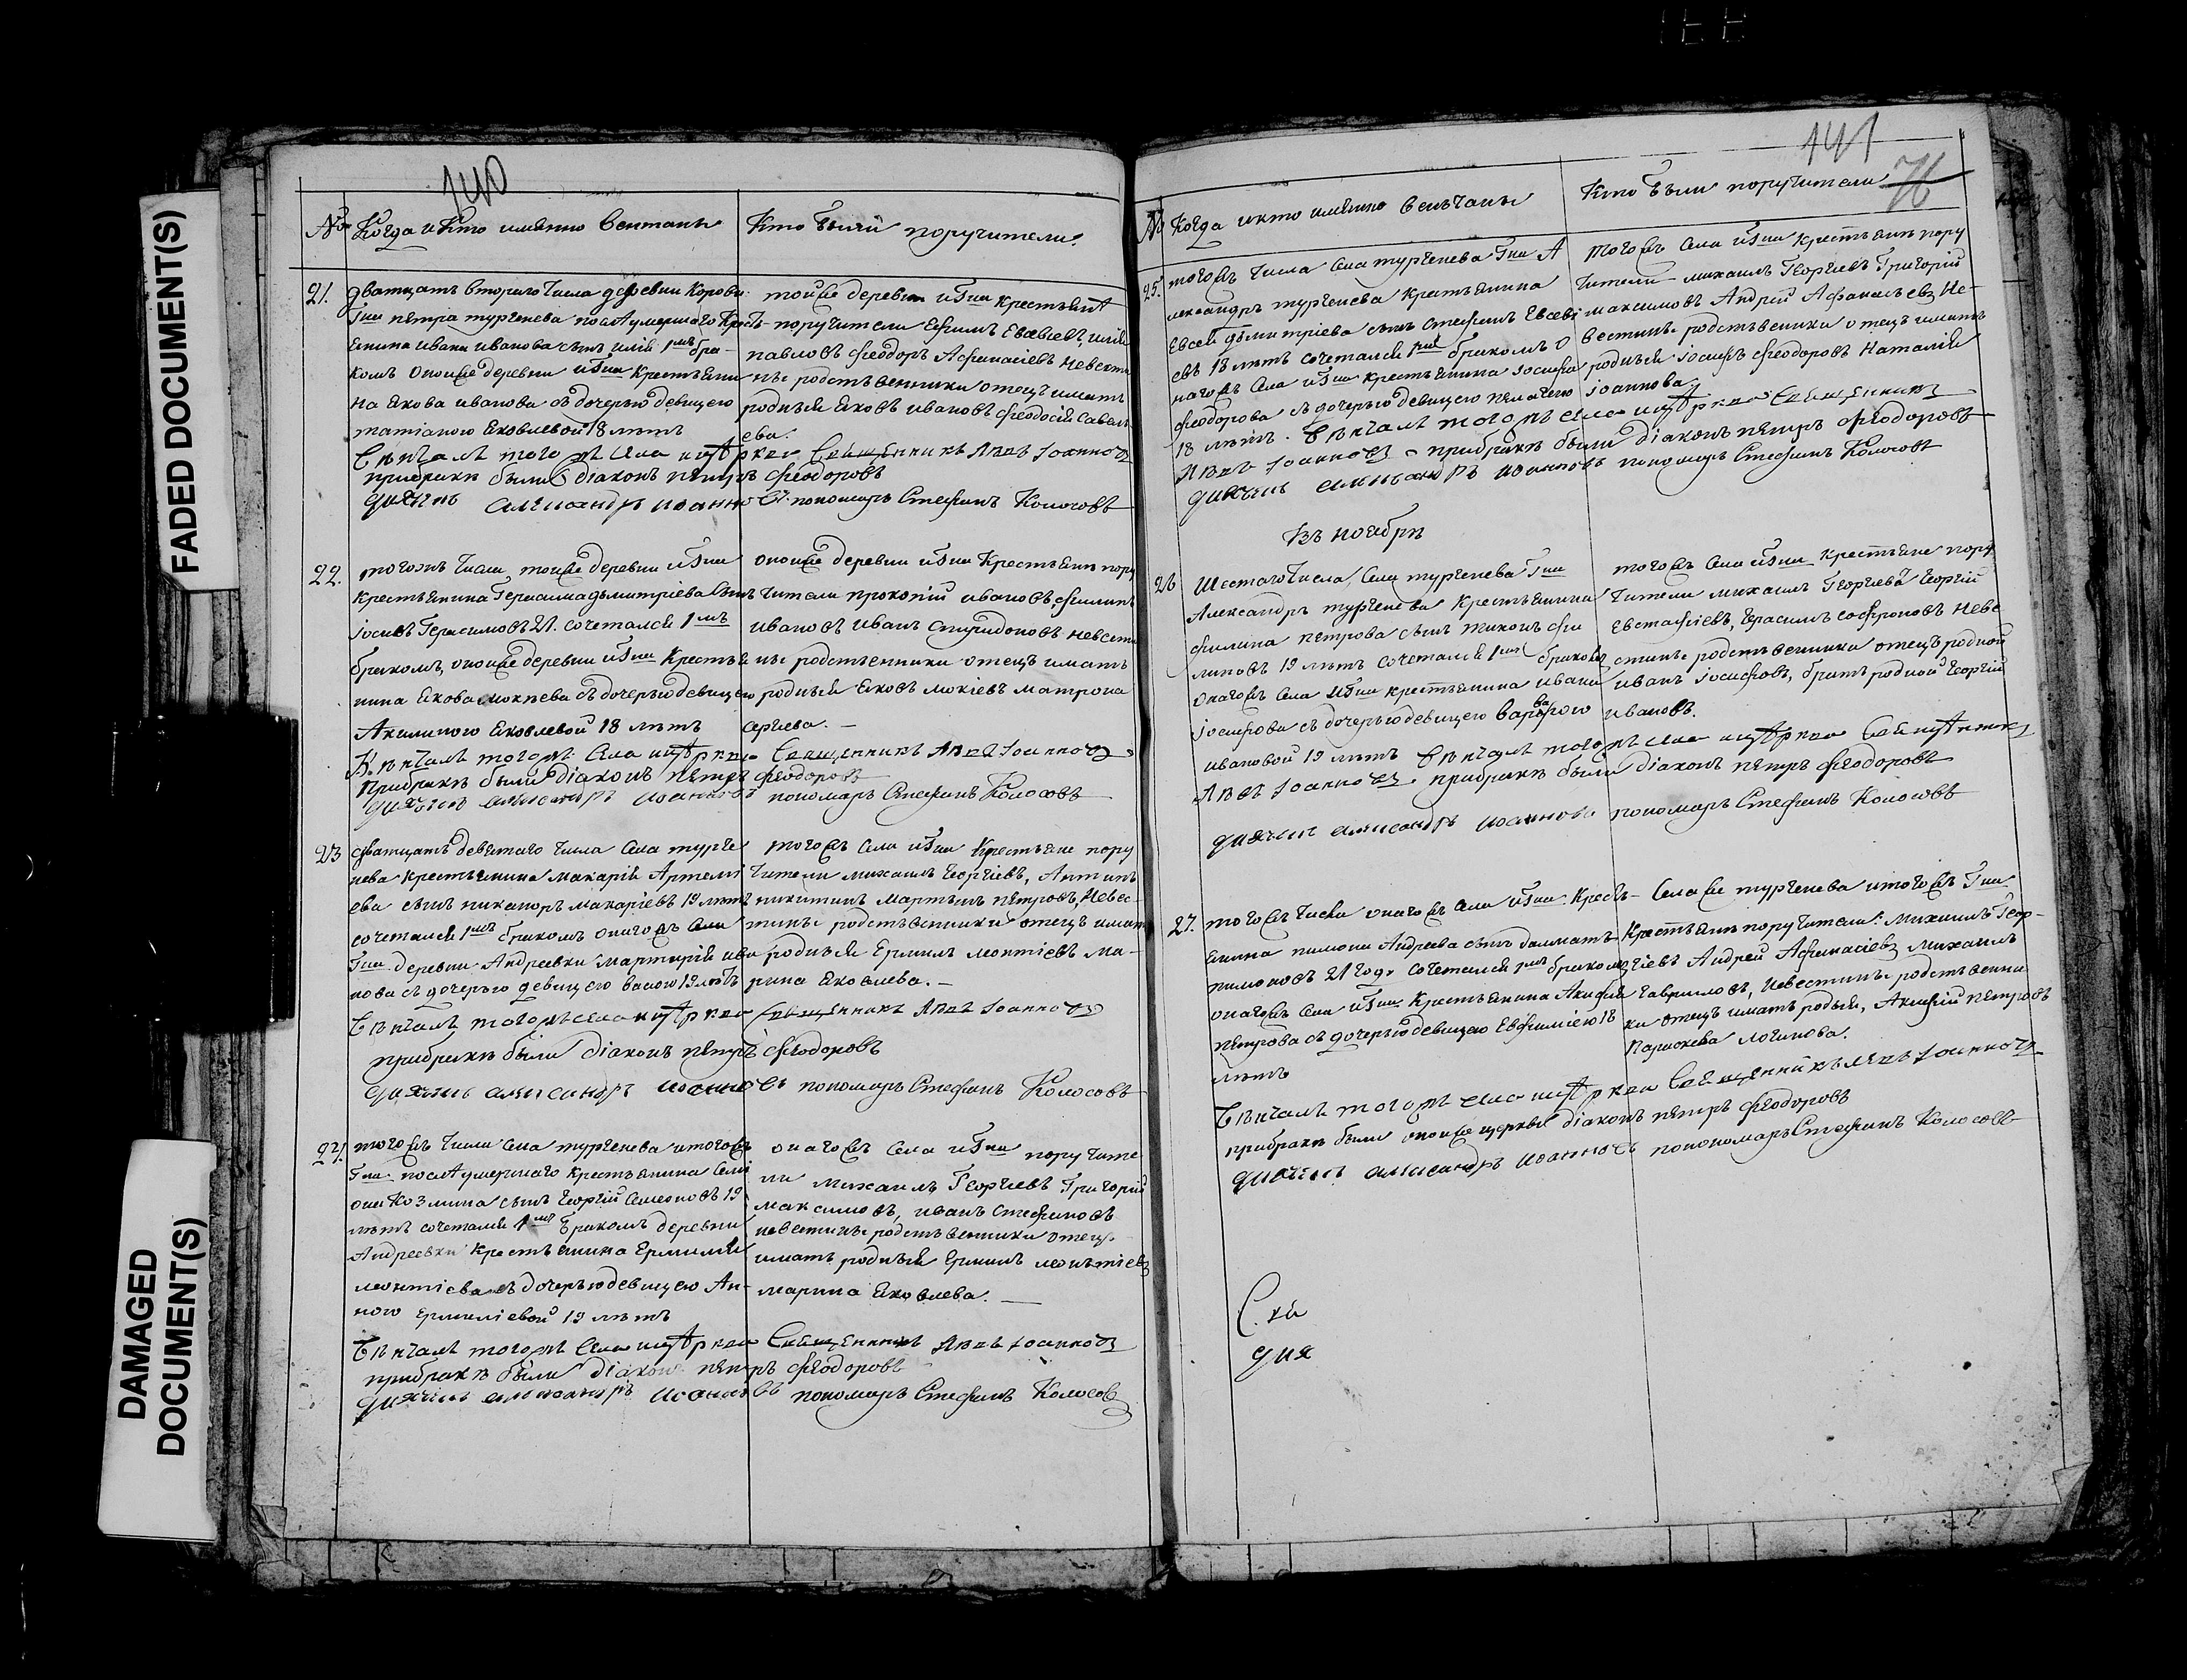 FADED DOCUMENT(S)
DAMAGED
DOCUMENT(S)
140
№ Когда и Кто имянно венчаны
Кто были поручители.
21. дватцать втораго числа деревни Корови
Гна петра тургенева послѣ умершаго Кресть
янина ивана иванова сынъ илiя 1мъ бра-
комъ оноиже деревни
на якова иванова съ дочерью девицею
татiаною яковлевой 18 лѣтъ
тойже деревни
поручители Ефимъ
павловъ феодоръ Афанасiевъ невести
ны родственники отецъ имать
родныя яковъ ивановъ феодосiя савель
ева.
Вѣнчалъ тогожъ села Священникъ Левъ Iоанновъ
прибракѣ были дiаконъ петръ феодоровъ
дьячекъ александръ иоанновъ пономарь Стефанъ Колосовъ
22. тогожъ числа тоиже деревни
крестьянина Герасима дьмитрiева сынъ
iосивъ Герасимовъ 21. сочетался 1мъ
бракомъ, оноиже деревни Крестья
нина якова мокѣева съ дочерью девицею
Акилиною яковлевой 18 лѣтъ
оноиже деревни крестьянѣ пору
чители прокопiй ивановъ, филипъ
ивановъ иванъ спиридоновъ невести
ны родственники отецъ имать
родныя яковъ мокiевъ матрона
сергiева.
Вѣнчалъ тогожъ села Священникъ Левъ Iоанновъ
Прибракѣ были дiаконъ петръ феодоровъ
дьячекъ александръ иоанновъ пономарь Стефанъ Колосовъ
23 дватцать девятаго числа села турге
нева крестьянина макарiя Артемi
ева сынъ никаноръ макарiевъ 19 лѣтъ
сочетался 1мъ бракомъ оногожъ села
Гна деревни Андреевки мартирiя ива
нова съ дочерью девицею 19 лѣтъ
тогожъ села крестьяне пору
чители михаилъ Георгiевъ, Антипъ
никитинъ мартынъ петровъ, невес-
тины родственники отецъ имать
родныя Ермилъ леонтiевъ ма-
рина яковлева.
Вѣнчалъ тогожъ села Священникъ Левъ Iоанновъ
прибракѣ были дiаконъ петръ феодоровъ
дьячекъ александръ иоанновъ пономарь Стефанъ Колосовъ
24. тогожъ числа села тургенева итогожъ
Гна послѣ умершаго крестьянина семi
она Козмина сынъ Георгiй Семеоновъ 19
лѣтъ сочетался 1мъ бракомъ деревни
Андреевки крестьянина Ермилы
леонтiева съ дочерью девицею Ан-
ною ермилiевой 19 лѣтъ
оногожъ села поручите
ли михаилъ Георгiевъ Григорiй
максимовъ, иванъ стефановъ
невестины родственники отецъ
имать родныя Ермилъ леонтiевъ
марина яковлева.
Вѣнчалъ тогожъ села Священникъ Левъ Iоанновъ
прибракѣ были дiаконъ петръ феодоровъ
дьячекъ александръ иоанновъ пономарь Стефанъ Колосовъ
141
76
№ Когда икто имянно венъчаны
Кто были поручители
25. тогожъ числа села тургенева Гна А
лександръ тургенева крестьянина
Евсея дьмитрiева сынъ стефанъ Евсев
евъ 18 лѣтъ сочетался 1мъ бракомъ о
ногожъ села крестьянина iосифа
феодорова съ дочерью девицею пелагею
18 лѣтъ.
тогожъ села крестьянѣ пору
чители михаилъ Георгiевъ Григорiй
максимовъ Андрей Афанасьевъ Не-
вестины родственики отецъ имать
родныя iосифъ феодоровъ Наталiя
iоаннова.
Вѣнчалъ тогожъ села Священникъ
Левъ Iоанновъ прибракѣ были дiаконъ петръ феодоровъ
дьячекъ александръ иоанновъ пономарь Стефанъ Колосовъ
Въ ноябрѣ
26 Шестаго числа, села тургенева Гна
Александръ тургенева Крестьянина
филипа петрова сынъ тихонъ фи
липовъ 19 лѣтъ сочетался 1мъ бракомъ
оногожъ села крестьянина ивана
iосифова съ дочерью девицею варварою
ивановой 19 лѣтъ
тогожъ села крестьяне пору
чители михаилъ Георгiевъ Георгiй
Евстафiевъ, Герасимъ софроновъ неве
стины родственники отецъ родной
иванъ iосифовъ, братъ родной Георгiй
ивановъ.
Вѣнчалъ тогожъ села Священникъ
Левъ Iоанновъ прибракѣ были дiаконъ петръ феодоровъ
дьячекъ александръ иоанновъ пономарь Стефанъ Колосовъ
27. тогожъ числа оногожъ села Кресть-
янина пимона Андреева сынъ далматъ
пимоновъ 21 годъ сочетался 1мъ бракомъ
оногожъ села Крестьянина Акифiя
петрова съ дочерью девицею Евфимiею 18
лѣтъ
Селаже тургенева итогожъ Гна
Крестьянѣ поручители: Михаилъ Геор-
гiевъ Андрей Афанасiевъ михаилъ
гавриловъ, невестины родственни
ки отецъ имать родныя, Акифiй петровъ
Параскева логинова.
Вѣнчалъ тогожъ села Священникъ Левъ Iоанновъ
прибракѣ были оноиже церкви дiаконъ петръ феодоровъ
дьячекъ александръ иоанновъ пономарь Стефанъ Колосовъ